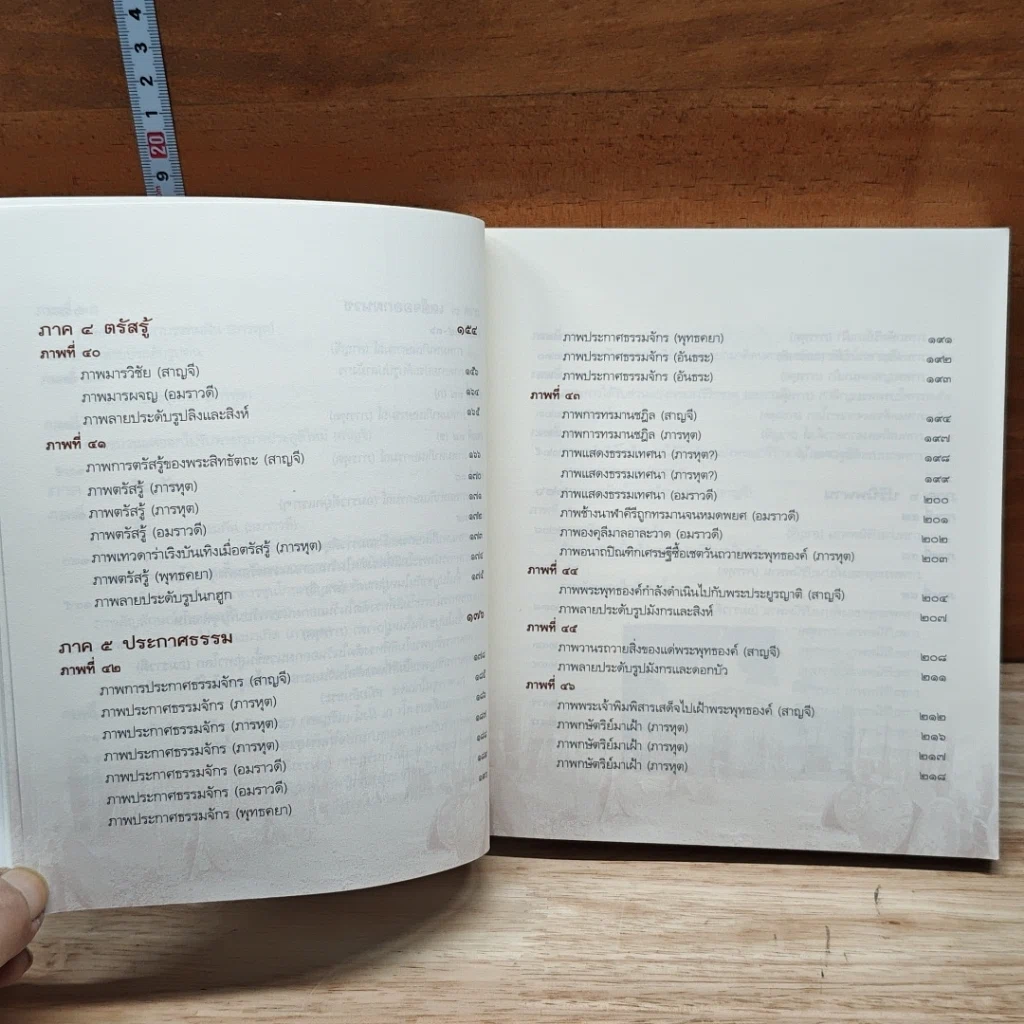 4
3
2
1
20
9
ภาค ๔ ตรัสรู้ ๑๕๔
ภาพที่ ๔๐
ภาพมารวิชัย (สาญจี) ๑๕๖
ภาพมารผจญ (อมราวดี) ๑๖๔
ภาพลายประดับรูปลิงและสิงห์ ๑๖๕
ภาพที่ ๔๑
ภาพการตรัสรู้ของพระสิทธัตถะ (สาญจี) ๑๖๖
ภาพตรัสรู้ (ภารหุต) ๑๗๐
ภาพตรัสรู้ (ภารหุต) ๑๗๑
ภาพตรัสรู้ (อมราวดี) ๑๗๒
ภาพเทวดาร่าเริงบันเทิงเมื่อตรัสรู้ (ภารหุต)
ภาพตรัสรู้ (พุทธคยา) ๑๗๔
ภาพลายประดับรูปนกฮูก ๑๗๕
ภาค ๕ ประกาศธรรม ๑๗๖
ภาพที่ ๔๒
ภาพการประกาศธรรมจักร (สาญจี) ๑๗๘
ภาพประกาศธรรมจักร (ภารหุต)
ภาพประกาศธรรมจักร (ภารหุต)
ภาพประกาศธรรมจักร (ภารหุต)
ภาพประกาศธรรมจักร (อมราวดี)
ภาพประกาศธรรมจักร (อมราวดี)
ภาพประกาศธรรมจักร (พุทธคยา)
ภาพประกาศธรรมจักร (พุทธคยา) ๑๙๑
ภาพประกาศธรรมจักร (อันธระ) ๑๙๒
ภาพประกาศธรรมจักร (อันธระ) ๑๙๓
ภาพที่ ๔๓
ภาพการทรมานชฎิล (สาญจี) ๑๙๔
ภาพการทรมานชฎิล (ภารหุต) ๑๙๗
ภาพแสดงธรรมเทศนา (ภารหุต?) ๑๙๘
ภาพแสดงธรรมเทศนา (ภารหุต?) ๑๙๙
ภาพแสดงธรรมเทศนา (อมราวดี) ๒๐๐
ภาพช้างนาฬาคีรีถูกทรมานจนหมดพยศ (อมราวดี) ๒๐๑
ภาพองคุลีมาลอาละวาด (อมราวดี) ๒๐๒
ภาพอนาถปิณฑิกเศรษฐีซื้อเชตวันถวายพระพุทธองค์ (ภารหุต) ๒๐๓
ภาพที่ ๔๔
ภาพพระพุทธองค์กำลังดำเนินไปกับพระประยูรญาติ (สาญจี) ๒๐๔
ภาพลายประดับรูปมังกรและสิงห์ ๒๐๗
ภาพที่ ๔๕
ภาพวานรถวายสิ่งของแด่พระพุทธองค์ (สาญจี) ๒๐๘
ภาพลายประดับรูปมังกรและดอกบัว ๒๑๑
ภาพที่ ๔๖
ภาพพระเจ้าพิมพิสารเสด็จไปเฝ้าพระพุทธองค์ (สาญจี) ๒๑๒
ภาพกษัตริย์มาเฝ้า (ภารหุต) ๒๑๖
ภาพกษัตริย์มาเฝ้า (ภารหุต) ๒๑๗
ภาพกษัตริย์มาเฝ้า (ภารหุต) ๒๑๘